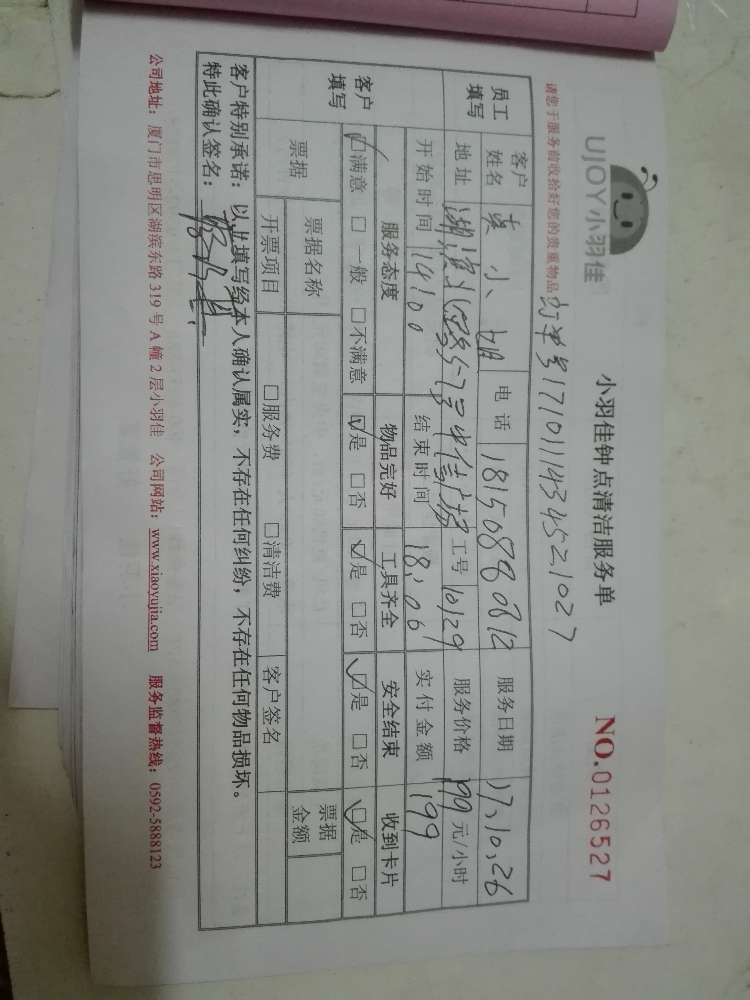 UJOY小羽佳
小羽佳钟点清洁服务单
NO.0126527
请您于服务前收拾好您的贵重物品
订单号17101143452 1027
员工填写
客户姓名 小姐 电话 18150880812 服务日期 17,10,26
地址 湖滨 工号 10129 服务价格 199 元/小时
开始时间 14:00 结束时间 18:06 实付金额 199
客户填写
服务态度 物品完好 工具齐全 安全结束 收到卡片
☑满意 □一般 □不满意 ☑是 □否 ☑是 □否 ☑是 □否 ☑是 □否
票据 票据名称 票据金额
开票项目 □服务费 □清洁费 客户签名
客户特别承诺：以上填写经本人确认属实，不存在任何纠纷，不存在任何物品损坏。
特此确认签名：
公司地址：厦门市思明区湖滨东路 319 号 A 幢 2 层小羽佳 公司网站：www.xiaoyujia.com 服务监督热线：0592-5888123